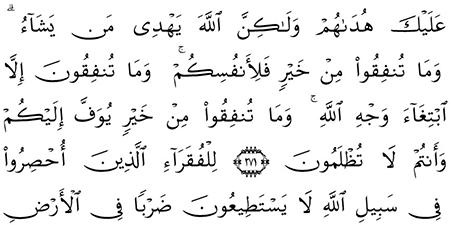 عَلَيْكَ هُدَىٰهُمْ وَلَـٰكِنَّ ٱللَّهَ يَهْدِى مَن يَشَآءُ ۗ
وَمَا تُنفِقُوا۟ مِنْ خَيْرٍ فَلِأَنفُسِكُمْ ۚ وَمَا تُنفِقُونَ إِلَّا
ٱبْتِغَآءَ وَجْهِ ٱللَّهِ ۚ وَمَا تُنفِقُوا۟ مِنْ خَيْرٍ يُوَفَّ إِلَيْكُمْ
وَأَنتُمْ لَا تُظْلَمُونَ ﴿٢٧١﴾ لِلْفُقَرَآءِ ٱلَّذِينَ أُحْصِرُوا۟
فِى سَبِيلِ ٱللَّهِ لَا يَسْتَطِيعُونَ ضَرْبًا فِى ٱلْأَرْضِ